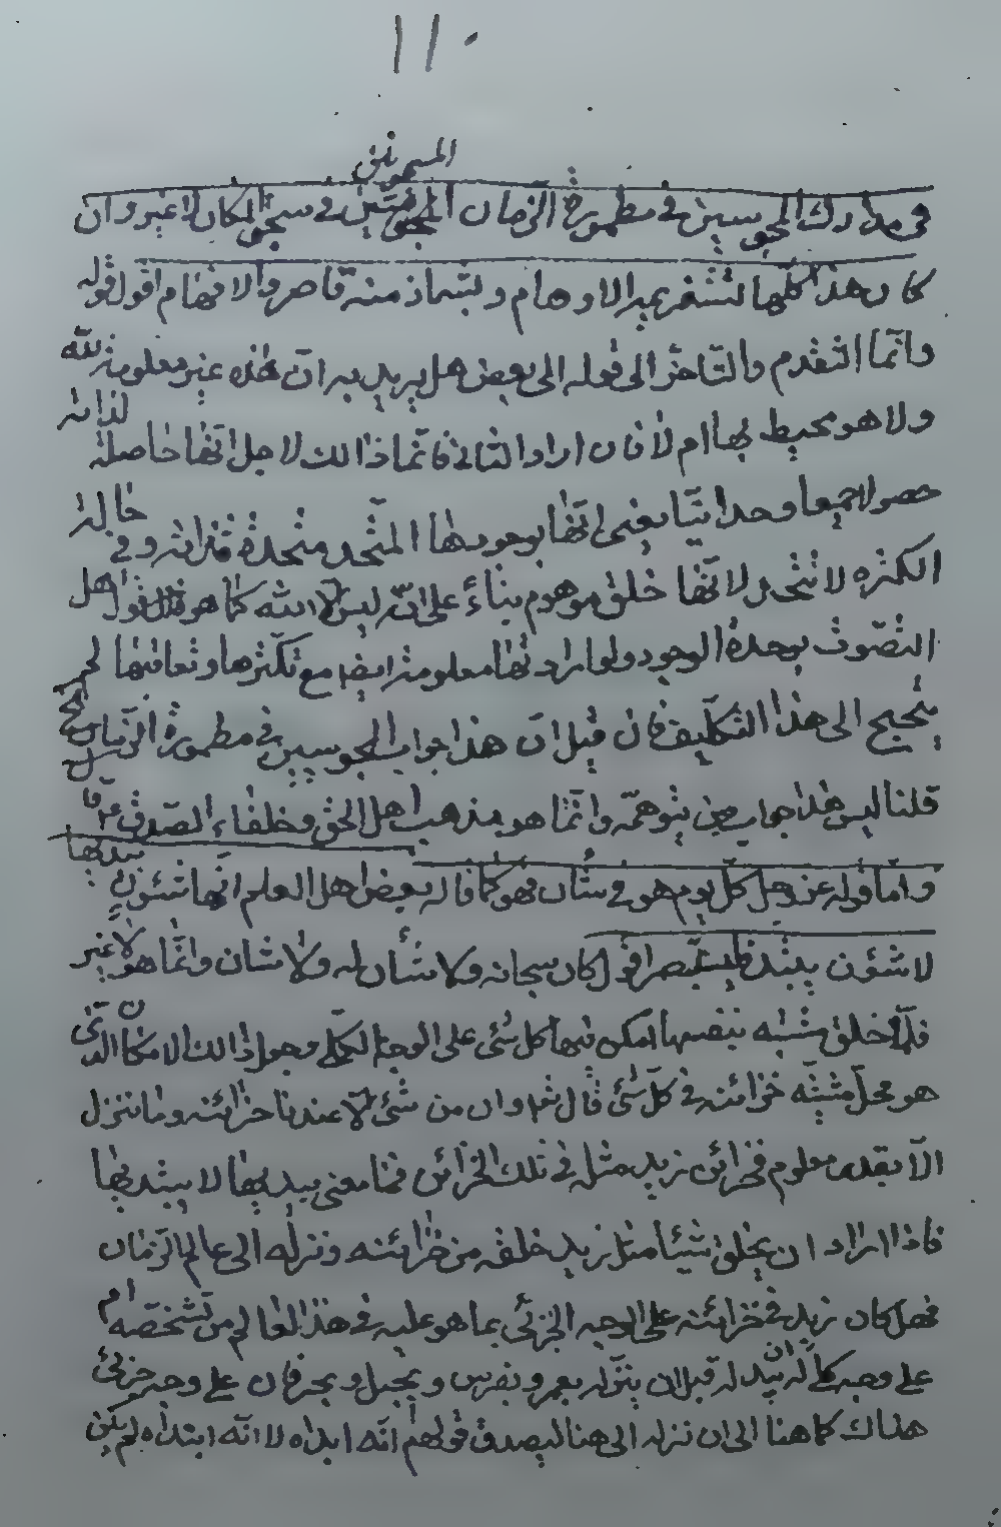 ١١٠
المسجونين
في مدارك المحبوسين في مطمورة الزمان المسجونين في سجن المكان لا غير وان
كان هذا كلها لتشمئز عنه الاوهام وتشماز منه قاصروا الافهام اقول قوله
وانما التقدم والتاخر الى قوله الى بعض هل يريد به ان هذه غير معلومة لله
ولا هو محيط بها ام لا فان اراد الثاني فانما ذالك لاجل انها حاصلة لذاته
حصولا جمعيا وحدانيا يعنى انها بوجودها المتحد متحدة في ذاته وفي حال
الكثرة لا تتحد لانها خلق موهوم بناءً على انه ليس الا الله كما هو قول اهل
التصوف بوحدة الوجود ولو اراد انها معلومة ايضا مع تكثرها وتعاقبها لم
يحتج الى هذا التكليف فان قيل ان هذا جواب المحبوسين في مطمورة الزمان
قلنا ليس هذا جواب من يتوهمه وانما هو مذهب اهل الحق وخلفاء الصدق قا
واما قوله عز وجل كل يوم هو في شان فهو كما قاله بعض اهل العلم انها شئون يبديها
لا شؤن يبتديها فليتبصر اقول كان سبحانه ولا شأن له ولا شان وانما هو لا غير
فلما خلق مشيته بنفسها امكن فيها كل شئ على الوجه الكلى وجعل ذالك الامكان الذى
هو محل مشيته خزائنه في كل شئ قال تعالى وان من شئ الا عندنا خزائنه وما ننزله
الا بقدر معلوم فخزائن زيد مثلا في تلك الخزائن فما معنى يبديها لا يبتديها
فاذا اراد ان يخلق شيئا مثل زيد خلقه من خزائنه ونزله الى عالم الزمان
فهل كان زيد في خزائنه على الوجه الجزئى بما هو عليه في هذا العالم من تشخصه ام
على وجه كلى له ان يبدله قبل ان ينزله بعمرو وبفرس وبجبل وبحر فان على وجه جزئى
هناك كما هنا الى ان نزله الى هنا ليصدق قولهم انه ابداه لا انه ابتداه لم يكن